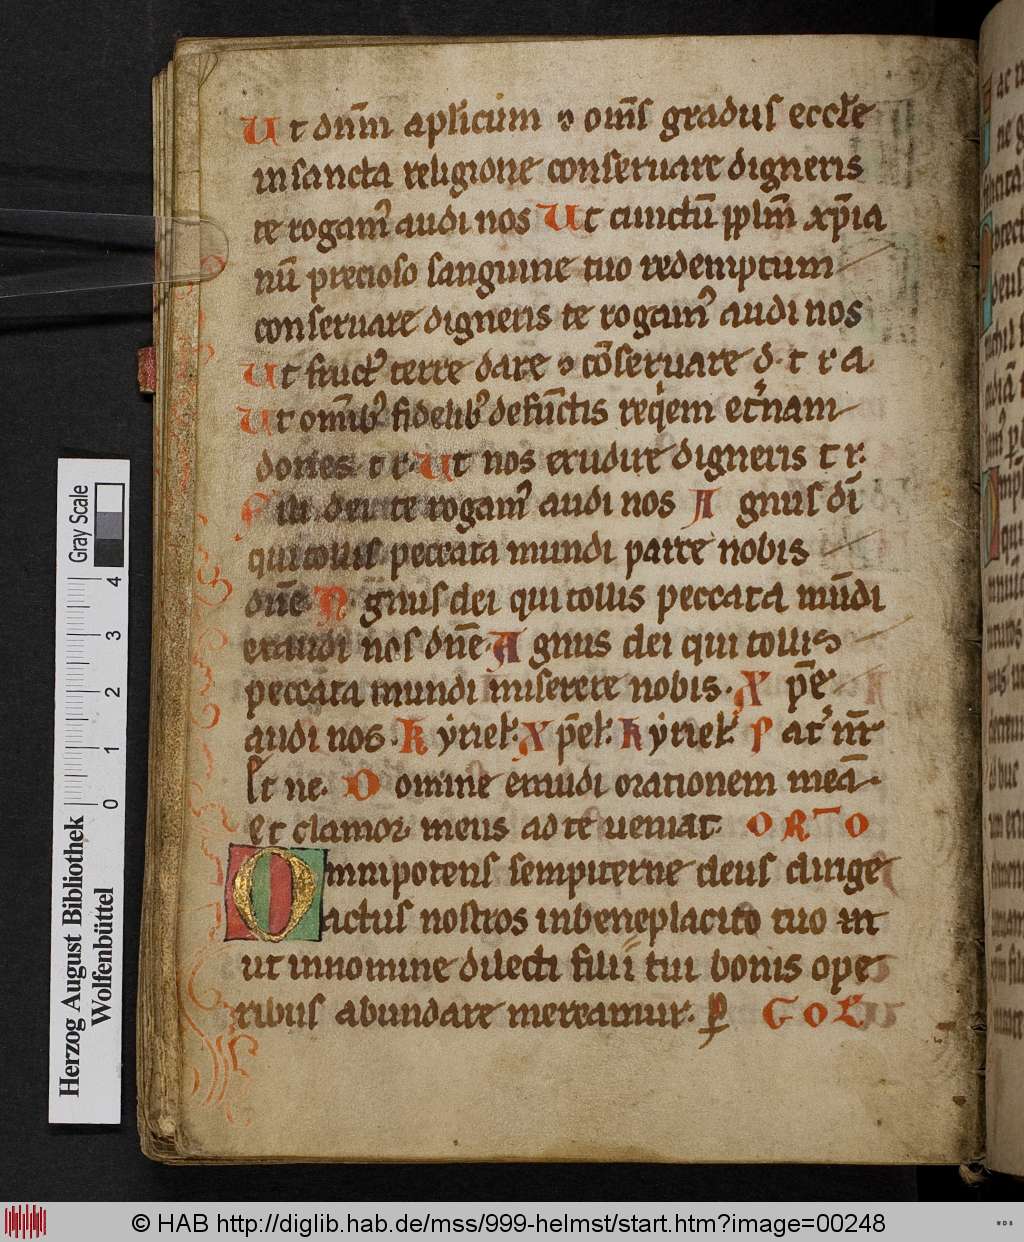 Ut dn̄m apl̄icum ⁊ om̄s gradus eccl̄e
in sancta religione conseruare digneris
te rogam᷒ audi nos Ut cunctū pp̄lm̄ xp̄ia
nū precioso sanguine tuo redemptum
conseruare digneris te rogam᷒ audi nos
Ut fruct᷒ terre dare ⁊ cōseruare d. t r a
Ut om̄ib᷒ fidelib᷒ defūctis reqiem et̾nam
dones t r. Ut nos exudire digneris t r.
Fili dei te rogam᷒ audi nos Agnus dī
qui tollis peccata mundi parce nobis
dn̄e Agnus dei qui tollis peccata mūdi
exaudi nos dn̄e Agnus dei qui tollis
peccata mundi miserere nobis. Xp̄e
audi nos. Kyriel̾. Xp̄el̾. kyriel̾. Pat̾ nr̄
& ne. Domine exaudi orationem meā.
Et clamor meus ad te ueniat. OR̄O
Omnipotens sempiterne deus dirige
actus nostros in beneplacito tuo in
ut in nomine dilecti filii tui bonis ope
ribus abundare mereamur. P̱ COL̄
Herzog August Bibliothek
Wolfenbüttel
0 1 2 3 4
Gray Scale
© HAB http://diglib.hab.de/mss/999-helmst/start.htm?image=00248